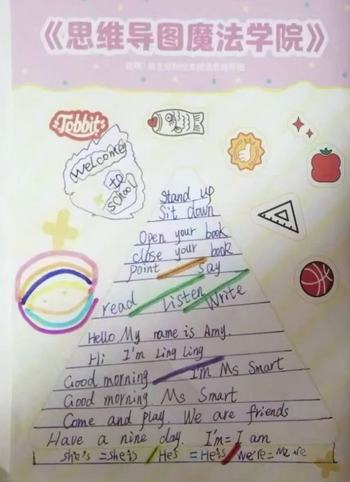 《思维导图魔法学院》
Tobbit
welcome
to
school
Stand up
Sit down
Open your book
close your book
point say
read Listen Write
Hello My name is Amy.
Hi I'm Ling Ling
Good morning. I'm Ms Smart
Good morning Ms Smart
Come and play. We are friends
Have a nine day. I'm = I am
she's = she is / He's = He is / we're = we are